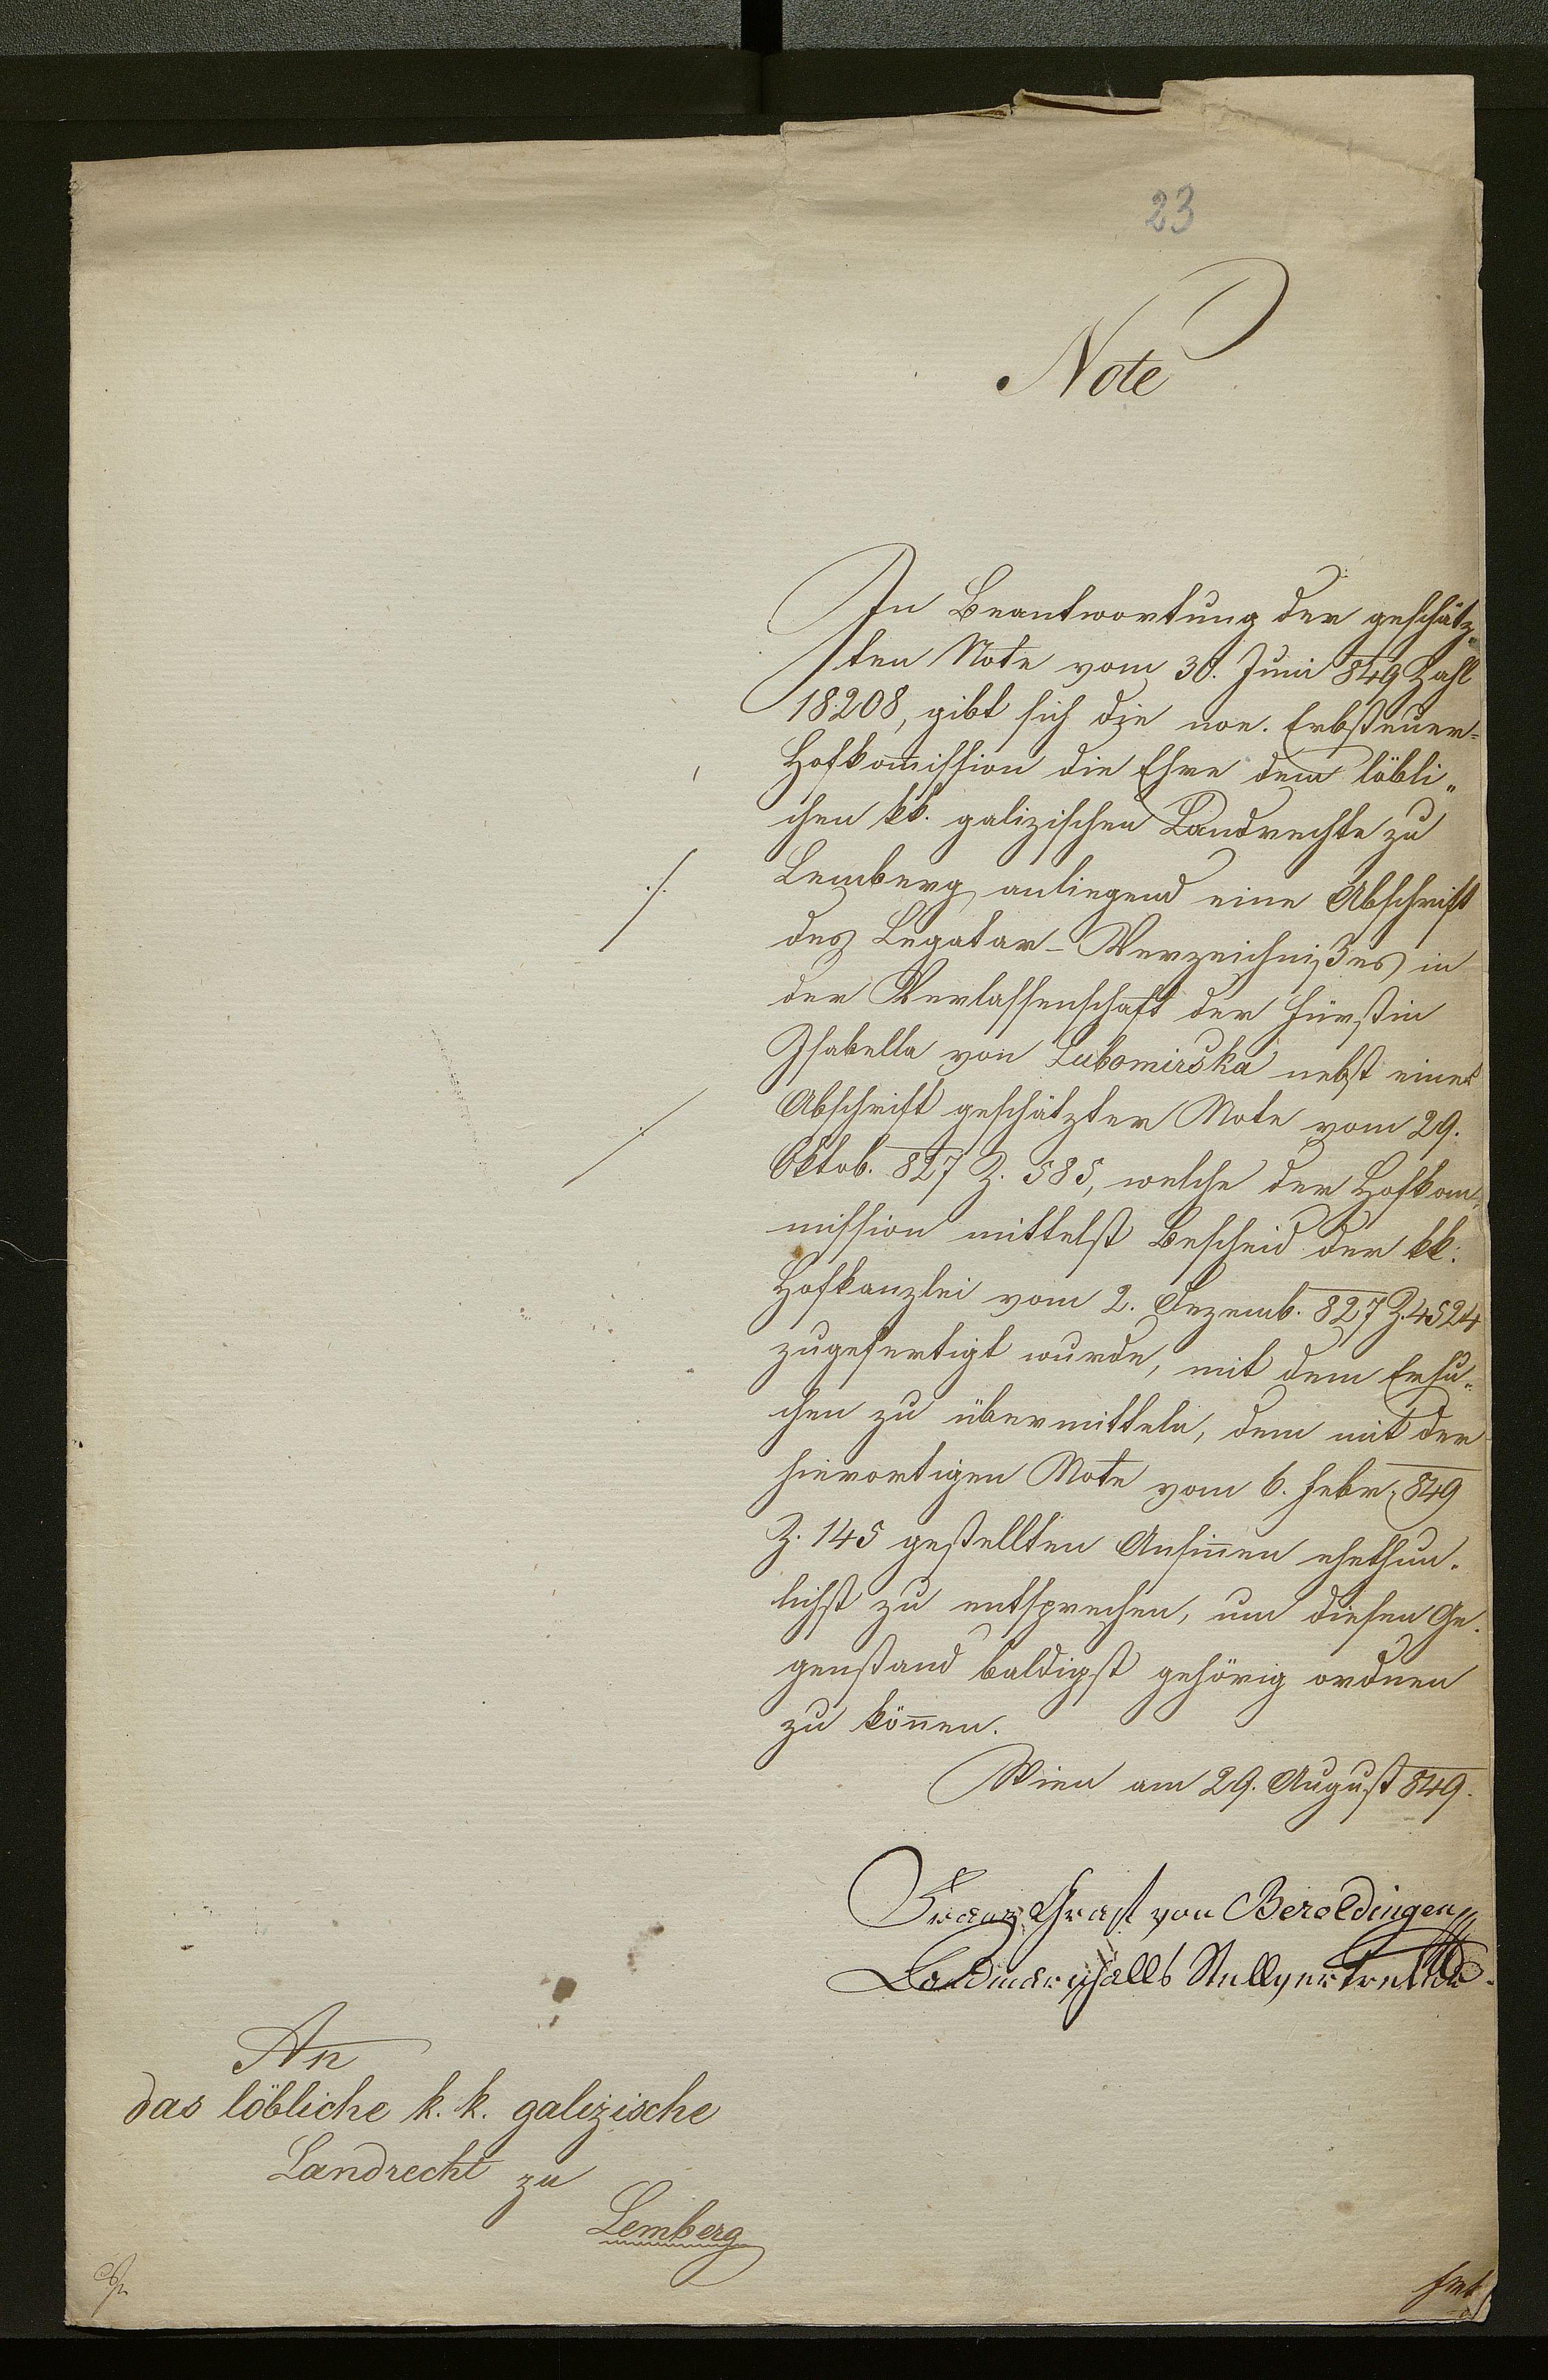 23
Note
In Beantwortung der geschätz„
ten Note vom 30. Juni 849 Zahl
18208, gibt sich die noe. Erbsteuer=
Hofkom̅ission die Ehre dem löbli„
chen kk. galizischen Landrechte zu
./. Lemberg anliegend eine Abschrift
des Legatar-Verzeichnißes in
der Verlassenschaft der Fürstin
Isabella von Lubomirska nebst einer
./. Abschrift geschätzter Note vom 29.
Oktob. 827 Z. 585, welche der Hofkom„
mission mittelst Bescheid der kk:
Hofkanzlei vom 2. Dezemb. 827 Z. 4524
zugefertigt wurde, mit dem Ersu„
chen zu übermitteln, dem mit der
hierortigen Note vom 6. Febr. 849
Z. 145 gestellten Ansin̅en ehethun„
lichst zu entsprechen, um diesen Ge„
genstand baldigst gehörig ordnen
zu kön̅en.
Wien am 29. August 849.
Franz Graf von Beroldingen
Landmarschalls Stellvertreter
An
das löbliche k. k. galizische
Landrecht zu
Lemberg